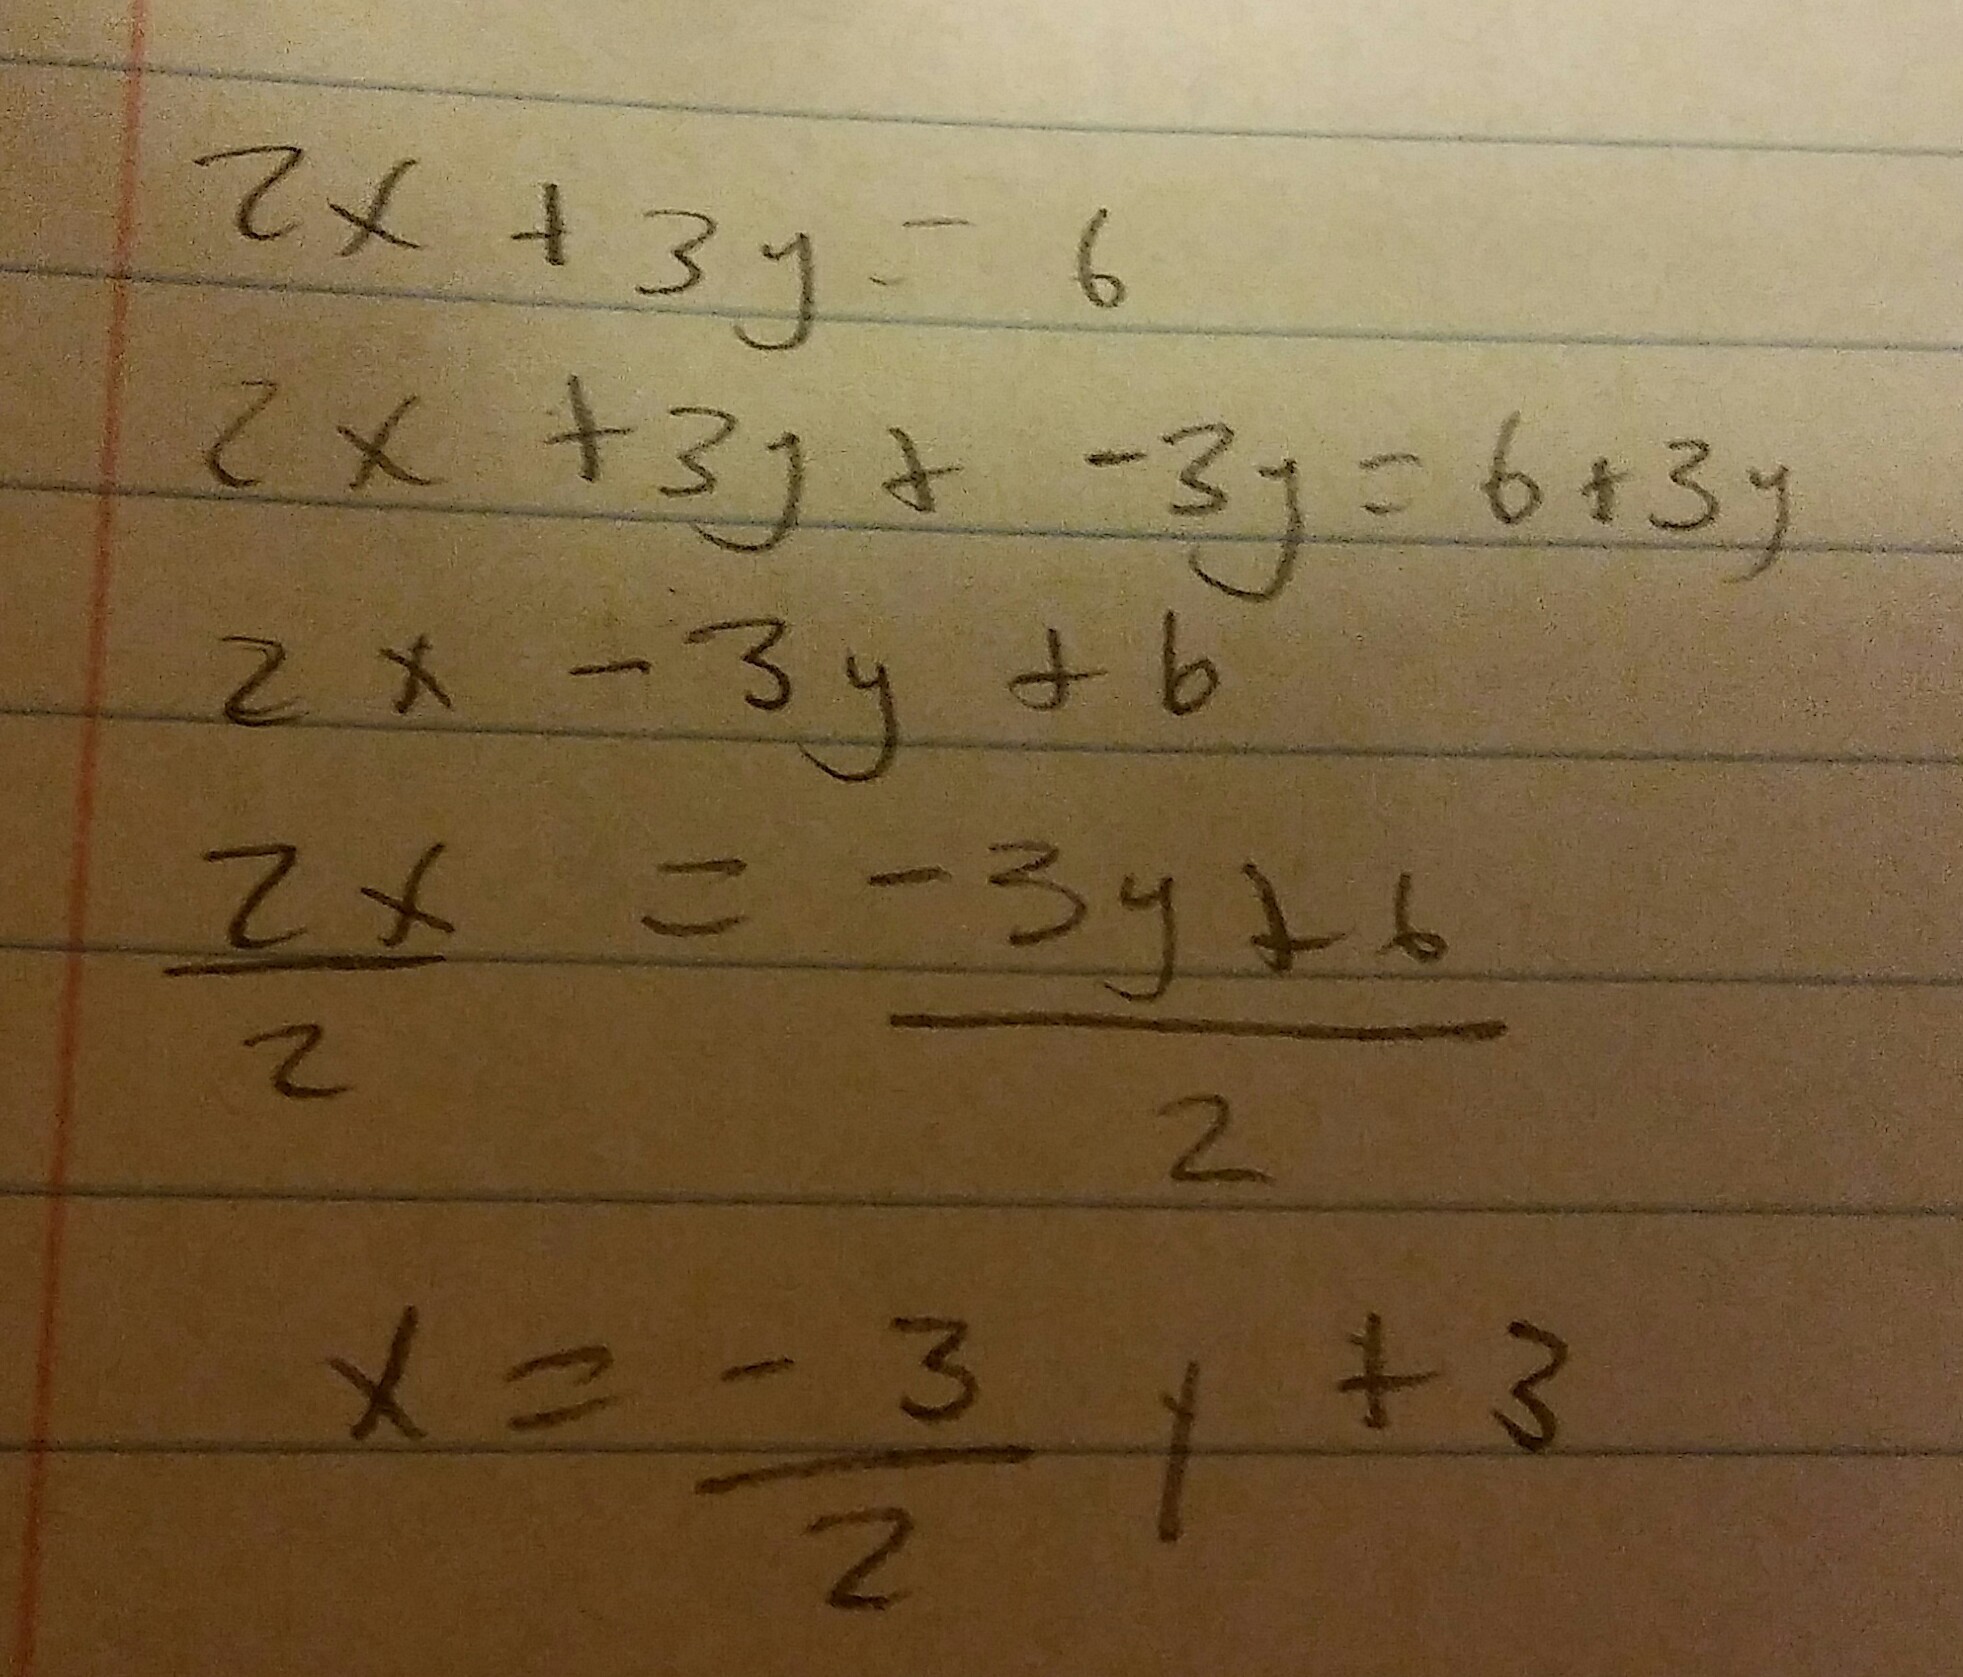 2x + 3y = 6
2x + 3y + -3y = 6 + 3y
2x - 3y + 6
2x/2 = -3y + 6/2
x = -3/2 y + 3